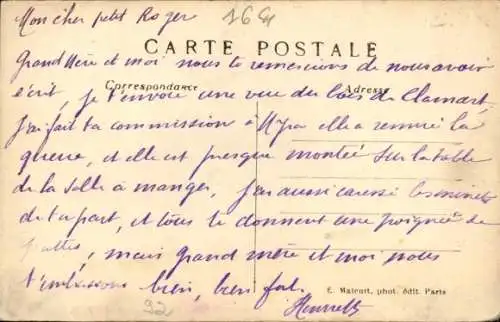 Mon cher petit Roger
CARTE POSTALE
Grand Mère et moi nous te remercions de nous avoir
Correspondance
Adresse
écrit, je t'envoie une vue du bois de Clamart,
j'ai fait ta commission à elle a remué la
queue, et elle est presque montée sur la table
de la salle à manger, j'ai aussi caressé les minets
de ta part, et tous te donnent une poignée de
pattes, mais grand mère et moi nous
t'embrassons bien, bien fort.
E. Malcuit, phot. édit. Paris
Henriette
92